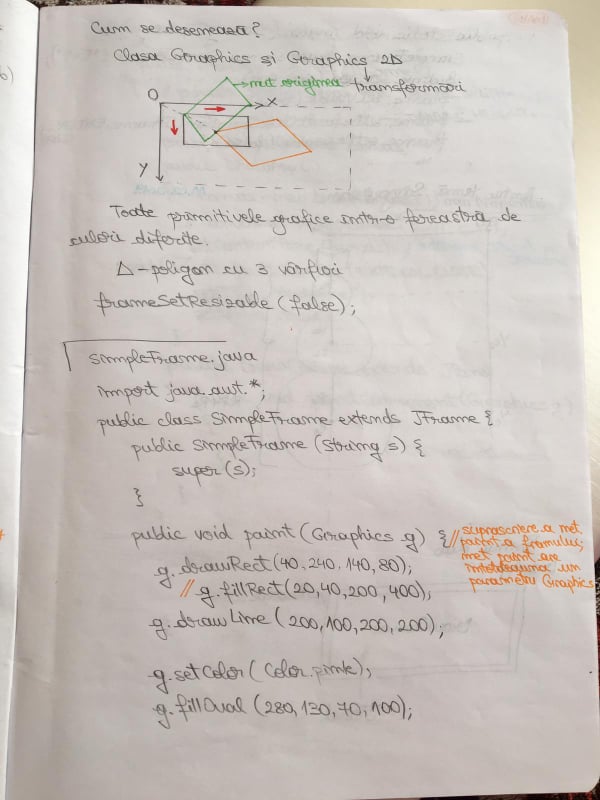 Cum se desenează?
Clasa Graphics și Graphics 2D
met originea transformări
O
X
Y
Toate primitivele grafice într-o fereastră de
culori diferite.
Δ - poligon cu 3 vârfuri
frameSetResizable (false);
SimpleFrame.java
import java.awt.*;
public class SimpleFrame extends JFrame {
public SimpleFrame (String s) {
super (s);
}
public void paint (Graphics g) { // suprascrierea met
paint a frameului;
met paint are
întotdeauna un
parametru Graphics
g.drawRect (40, 240, 140, 80);
// g.fillRect (20, 40, 200, 400);
g.drawLine (200, 100, 200, 200);
g.setColor (Color.pink);
g.fillOval (280, 130, 70, 100);